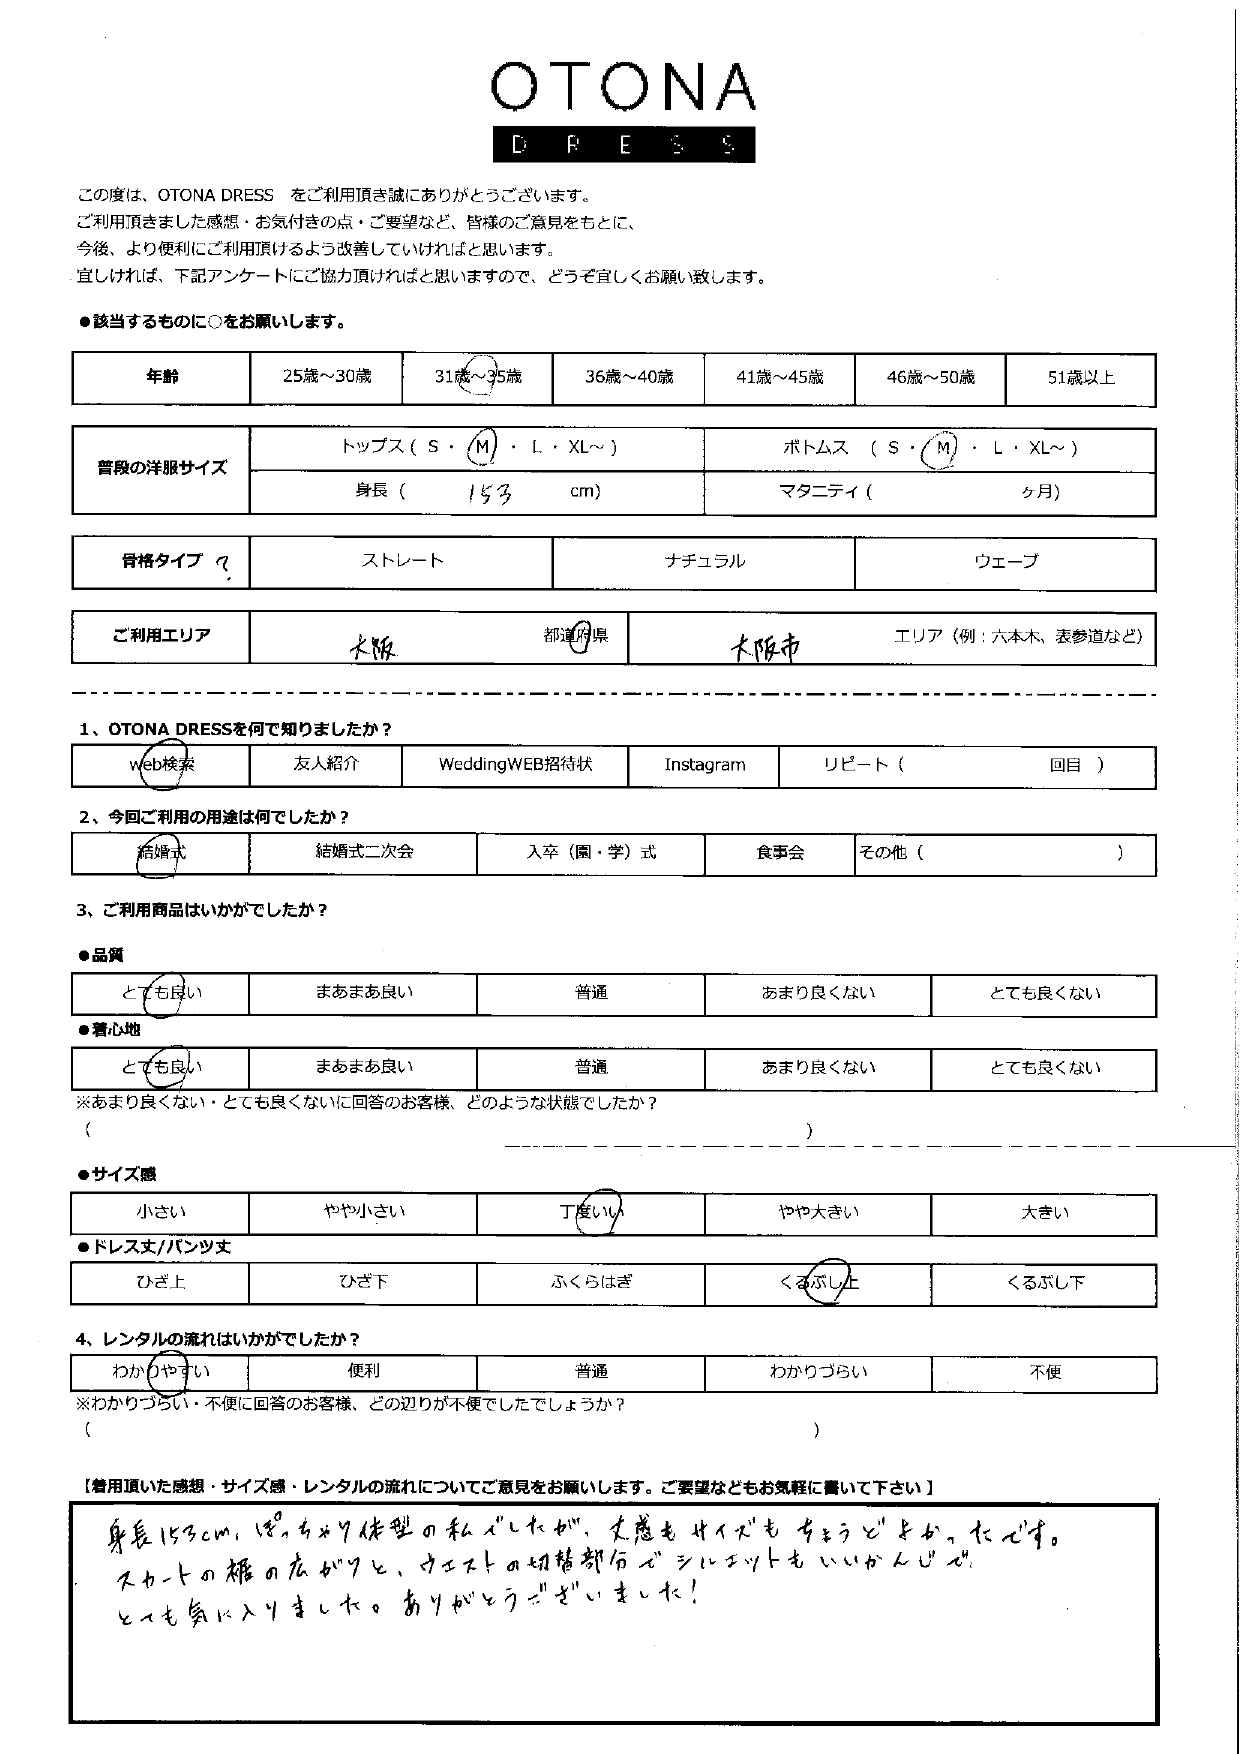 OTONA
DRESS
この度は、OTONA DRESS　をご利用頂き誠にありがとうございます。
ご利用頂きました感想・お気付きの点・ご要望など、皆様のご意見をもとに、
今後、より便利にご利用頂けるよう改善していければと思います。
宜しければ、下記アンケートにご協力頂ければと思いますので、どうぞ宜しくお願い致します。
●該当するものに○をお願いします。
年齢 25歳～30歳 31歳～35歳 36歳～40歳 41歳～45歳 46歳～50歳 51歳以上
普段の洋服サイズ トップス ( S ・ M ・ L ・ XL～ ) ボトムス ( S ・ M ・ L ・ XL～ )
身長 ( 153 cm) マタニティ ( ヶ月)
骨格タイプ ? ストレート ナチュラル ウェーブ
ご利用エリア 大阪 都道府県 大阪市 エリア（例：六本木、表参道など）
1、OTONA DRESSを何で知りましたか？
web検索 友人紹介 WeddingWEB招待状 Instagram リピート ( 回目 )
2、今回ご利用の用途は何でしたか？
結婚式 結婚式二次会 入卒（園・学）式 食事会 その他 ( )
3、ご利用商品はいかがでしたか？
●品質
とても良い まあまあ良い 普通 あまり良くない とても良くない
●着心地
とても良い まあまあ良い 普通 あまり良くない とても良くない
※あまり良くない・とても良くないに回答のお客様、どのような状態でしたか？
( )
●サイズ感
小さい やや小さい 丁度いい やや大きい 大きい
●ドレス丈/パンツ丈
ひざ上 ひざ下 ふくらはぎ くるぶし上 くるぶし下
4、レンタルの流れはいかがでしたか？
わかりやすい 便利 普通 わかりづらい 不便
※わかりづらい・不便に回答のお客様、どの辺りが不便でしたでしょうか？
( )
【着用頂いた感想・サイズ感・レンタルの流れについてご意見をお願いします。ご要望などもお気軽に書いて下さい】
身長153cm、ぽっちゃり体型の私でしたが、丈感もサイズもちょうどよかったです。
スカートの裾の広がりと、ウエストの切替部分でシルエットもいいかんじで
とても気に入りました。ありがとうございました!